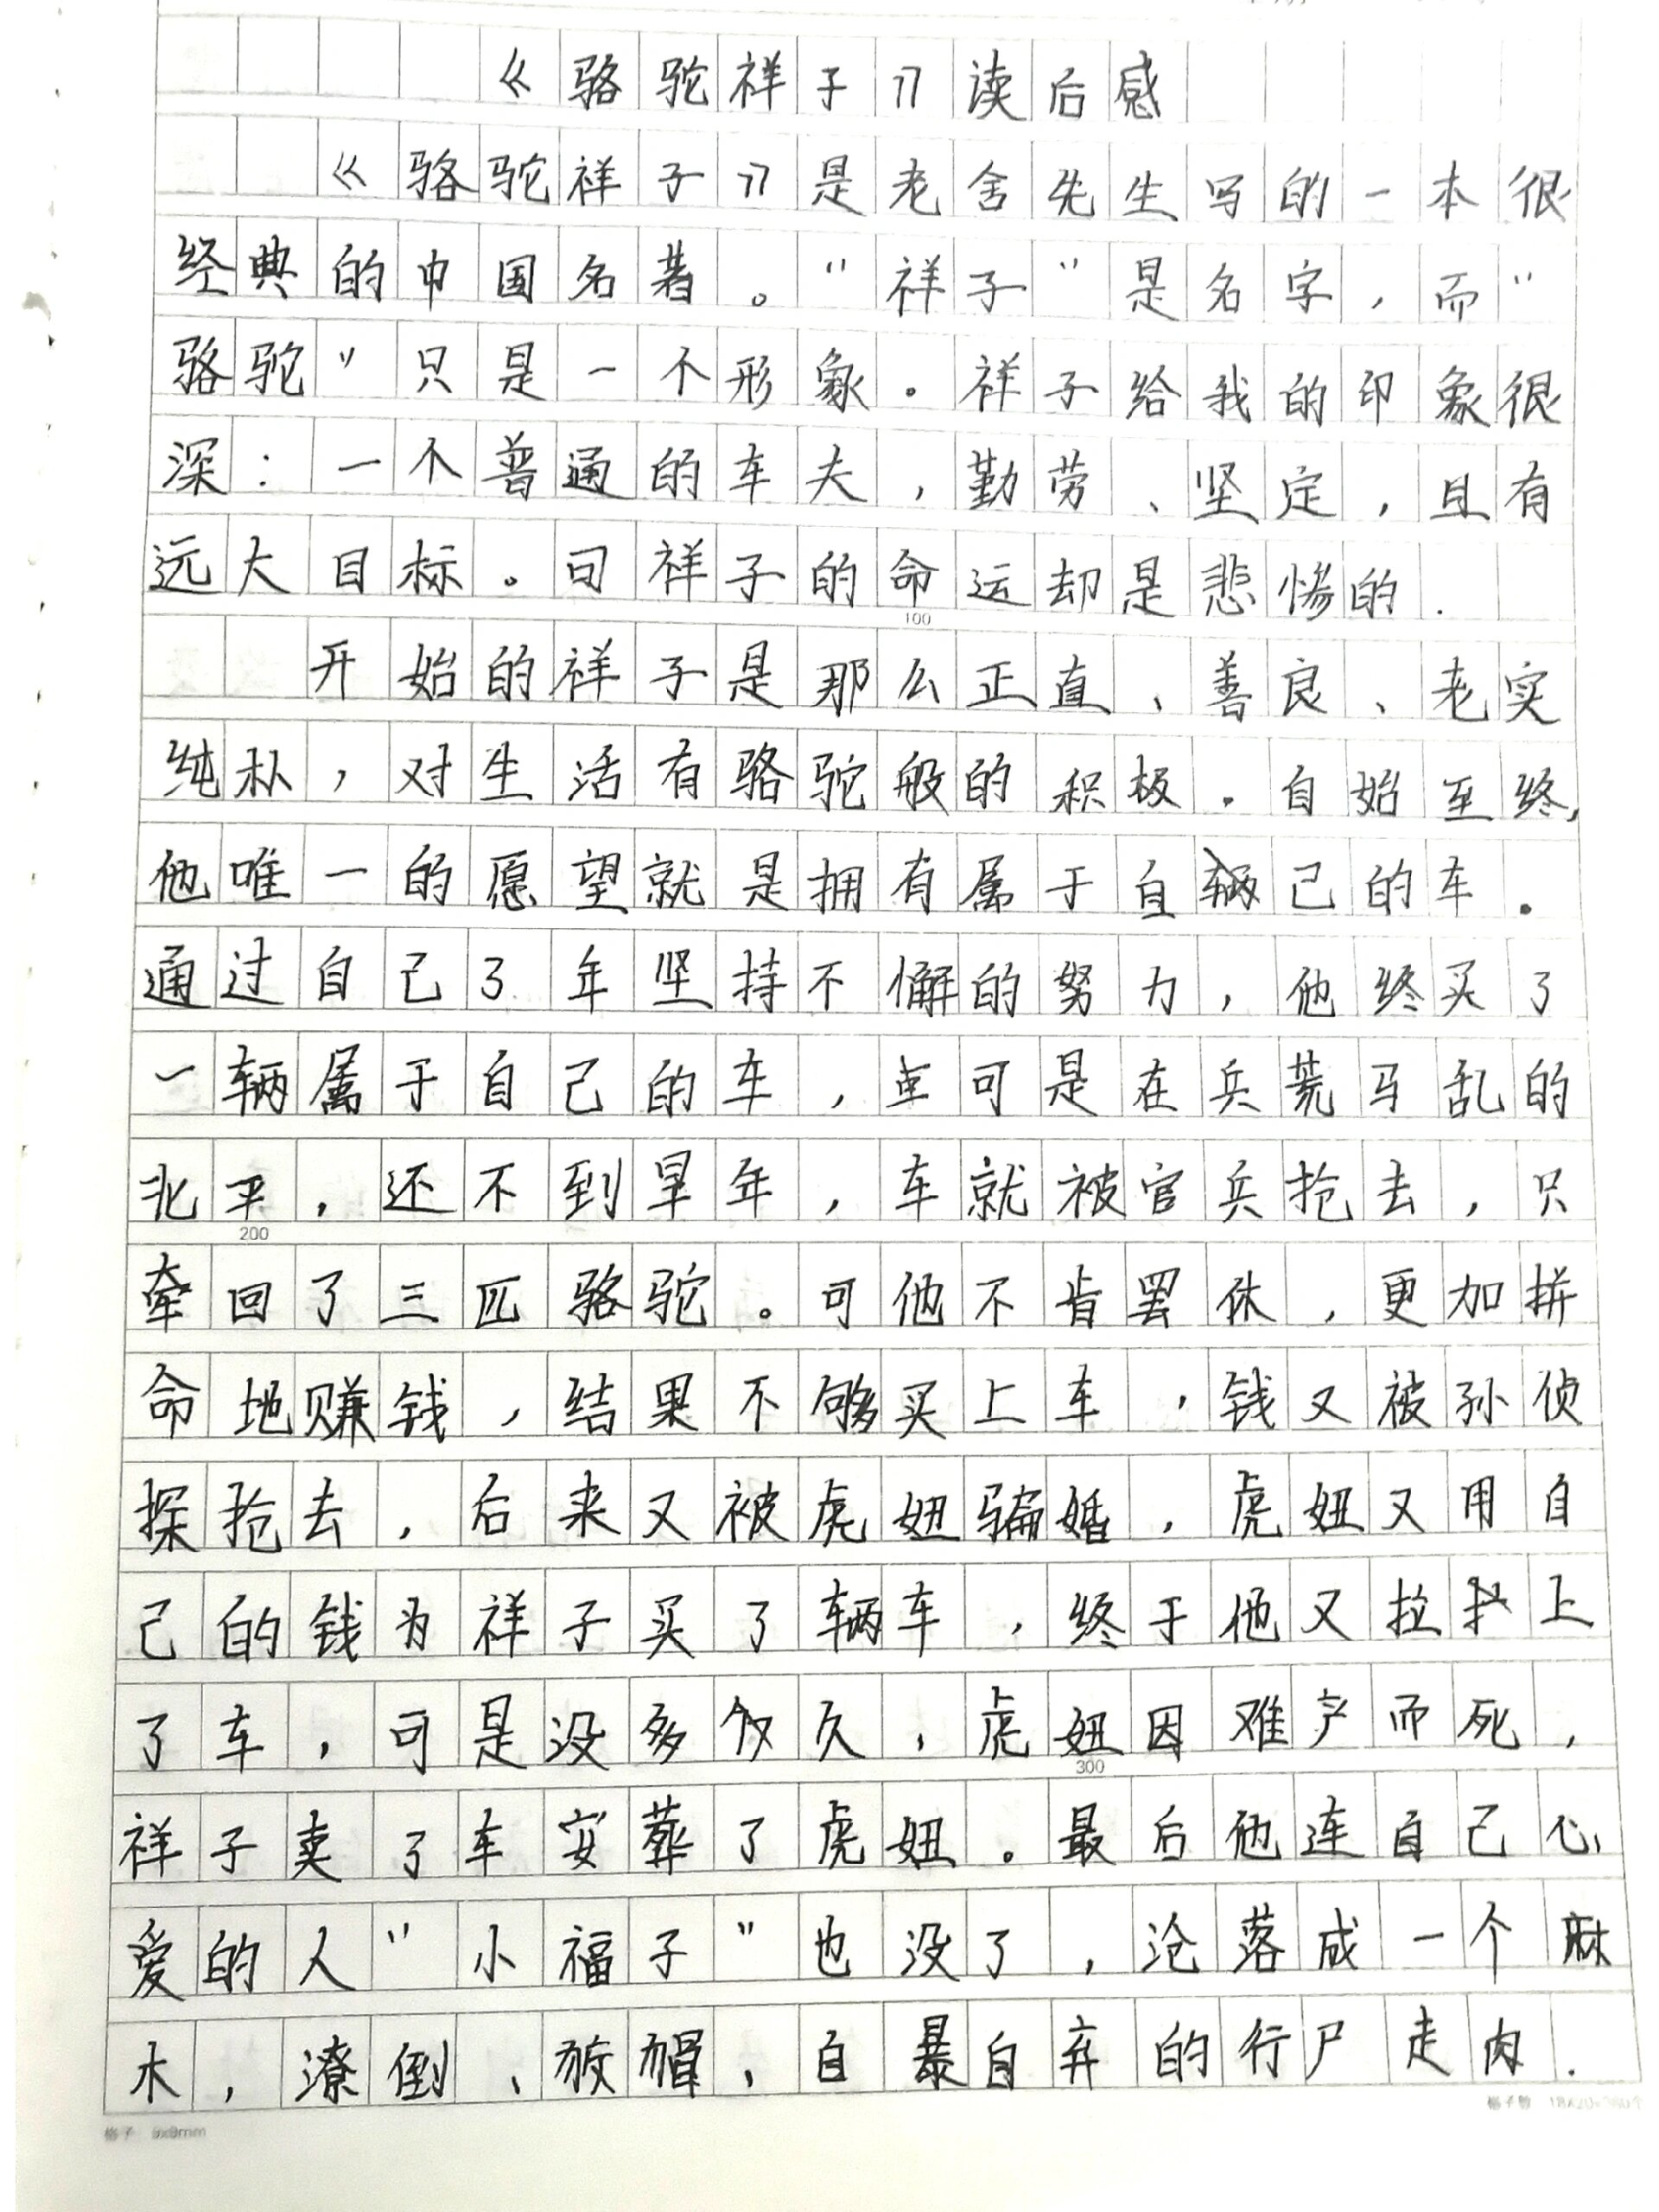 《骆驼祥子》读后感
《骆驼祥子》是老舍先生写的一本很
经典的中国名著。“祥子”是名字，而“
骆驼”只是一个形象。祥子给我的印象很
深：一个普通的车夫，勤劳、坚定，且有
远大目标。可祥子的命运却是悲惨的.
100
开始的祥子是那么正直、善良、老实
纯朴，对生活有骆驼般的积极。自始至终，
他唯一的愿望就是拥有属于自己的车。
通过自己3年坚持不懈的努力，他终买了
一辆属于自己的车，可是在兵荒马乱的
北平，还不到早年，车就被官兵抢去，只
200
牵回了三匹骆驼。可他不肯罢休，更加拼
命地赚钱，结果不够买上车，钱又被孙侦
探抢去，后来又被虎妞骗婚，虎妞又用自
己的钱为祥子买了辆车，终于他又拉上
了车，可是没多久，虎妞因难产而死，
300
祥子卖了车安葬了虎妞。最后他连自己心
爱的人“小福子”也没了，沦落成一个麻
木，潦倒、，自暴自弃的行尸走肉.
格子 9x9mm